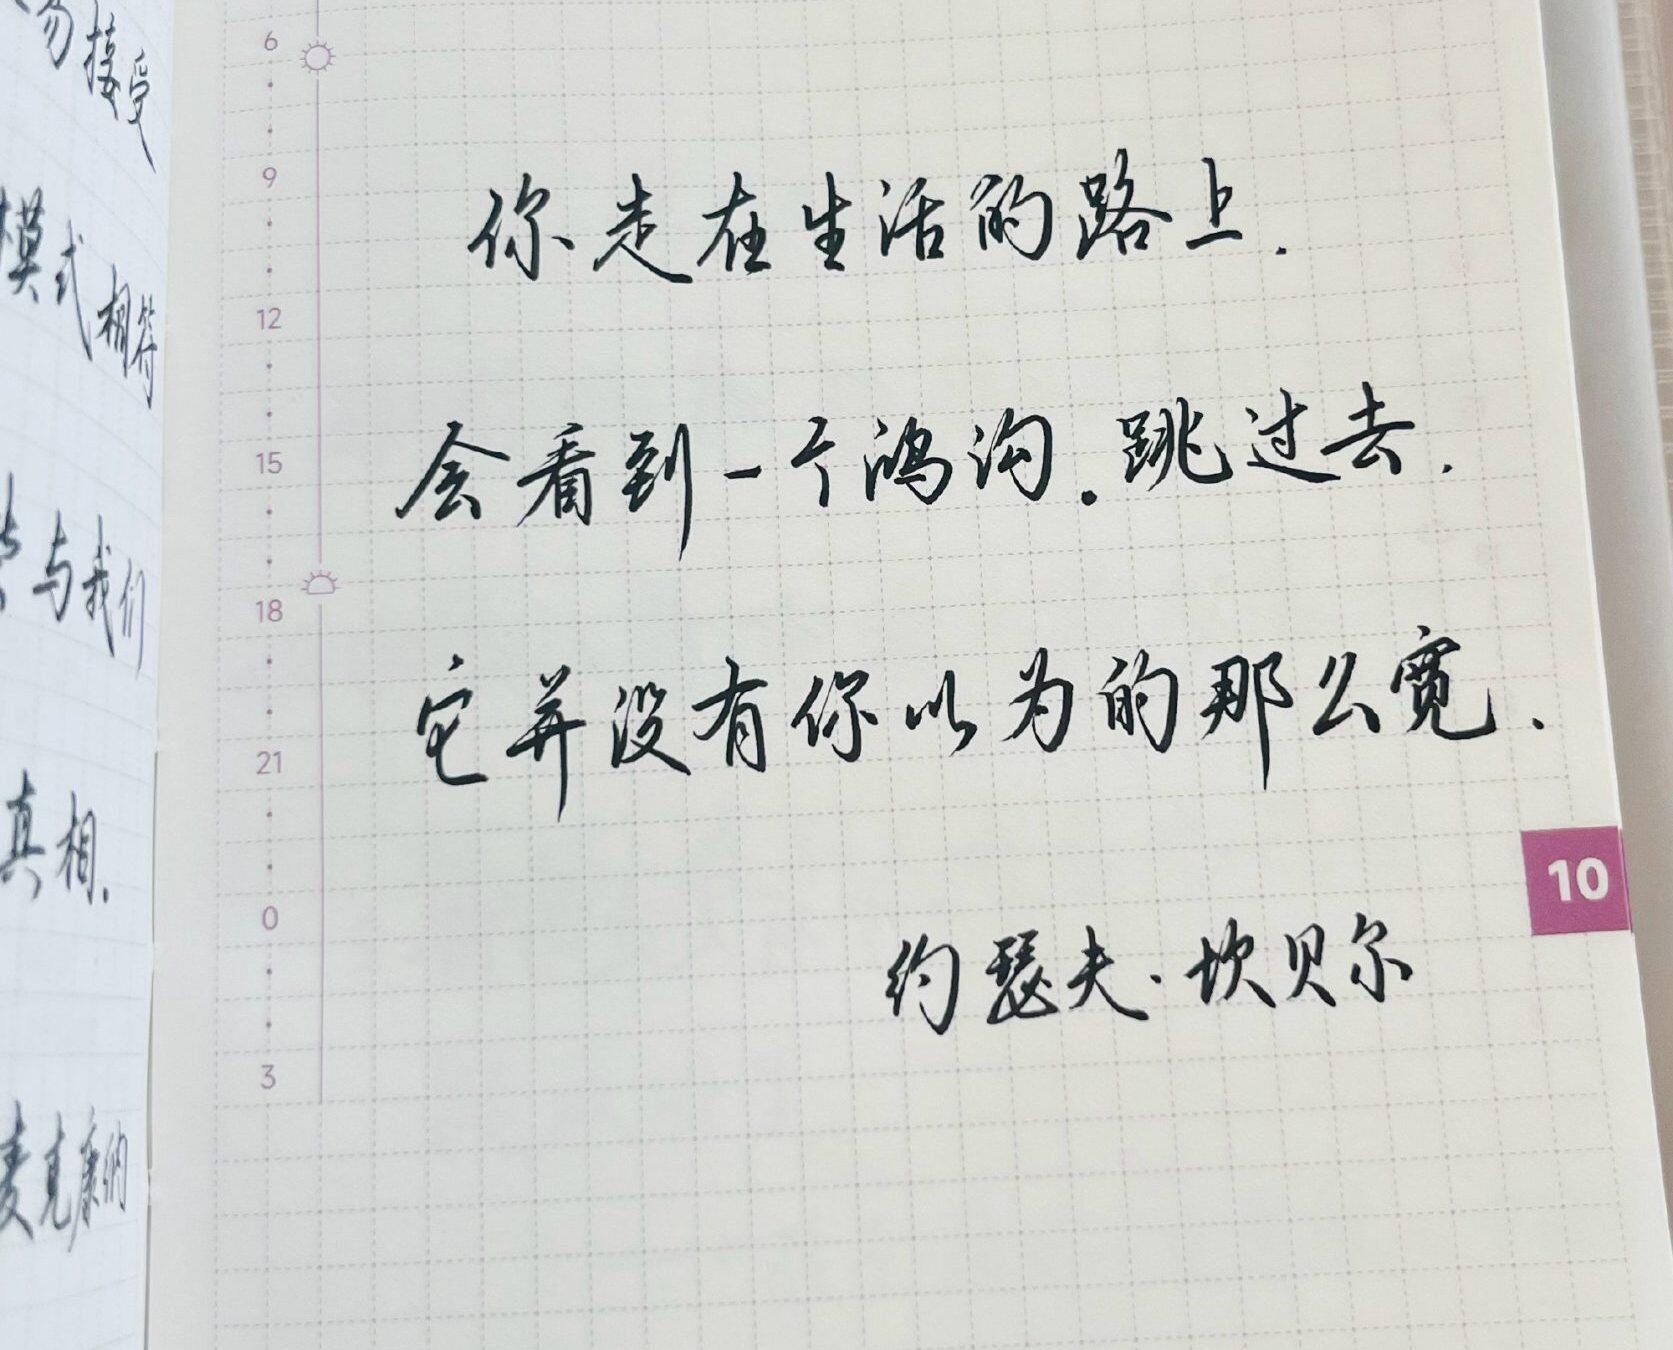 勿接受
模式相符
与我们
真相.
麦克康纳
6
9
12
15
18
21
0
3
你走在生活的路上.
会看到一个鸿沟.跳过去.
它并没有你以为的那么宽.
约瑟夫·坎贝尔
10